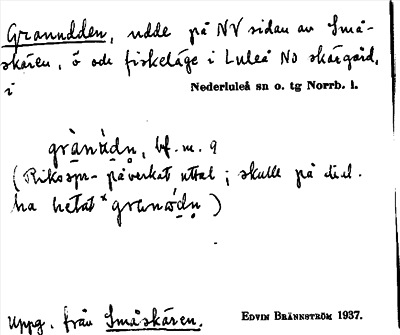 Grannudden, udde på NV sidan av Små-
skären, ö och fiskeläge i Luleå No skärgård,
i Nederluleå sn o. tg Norrb. l.
grànùdn, bf. m. q
(Rikspr-påverkat uttal; skulle på dial.
ha hetat *
Uppg. från Småskären. EDVIN BRÄNNSTRÖM 1937.